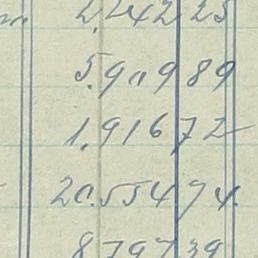 2,242 25
5.909 89
1.916 72
20.554 74
8.797 39